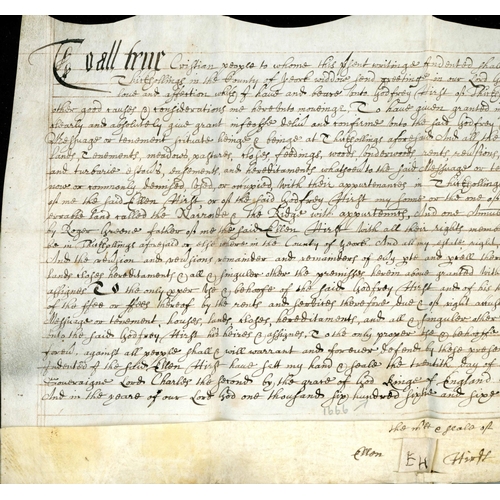 To all true Cristian people to whome this psent writinge Indented shall
Thirstollings in the County of Yorke widdow send greetinge in our Lord
love and affection which I have and beare unto Godfrey Hirst of
other good causes & considerations me hereunto moveinge. To have given granted
clearly and absolutely give grant infeoffe deliv and confirme unto the said Godfrey
Messuage or tenement scituate beinge & beinge at Thirstollings aforesaid And all the
lands Tenements, meadows, pastures, closes feedings, woods underwoods rents reversions
and turbarie easements, and hereditaments whatsoever to the said Messuage or
now or commonly demised used or occupied with their appurtenances in Thirstollings
of me the said Ellen Hirst or of the said Godfrey Hirst my sonne or the one of
errable land called the Narrodes & the Ridge with appurtents, And one Annuall
by Roger Greene father of me the said Ellen Hirst With all their rights
in Thirstollings aforesaid or else where in the County of Yorke And all my estate right
And the revcion and revcions remainder and remainders of
lands closes hereditaments & all & singuler other the premisses herein above granted with
assignes To the only pper use & behoofe of the said Godfrey Hirst and of his
of the ffee or ffees thereof by the rents and services therefore due & of right
Messuage or tenement, houses, lands closes hereditaments, and all & singuler other
unto the said Godfrey Hirst his heires & assignes. To the only proper use & behoofe
forev, against all people shall & will warrant and forever defend by these
Indented I the said Ellen Hirst have sett my hand & seale the twentith day of
Soveraigne Lord Charles the second by the grace of God Kinge of England
And in the yeare of our Lord God one thousand six hundred sixtie and sixe
1666
the mke & seale of
Ellen EH Hirst